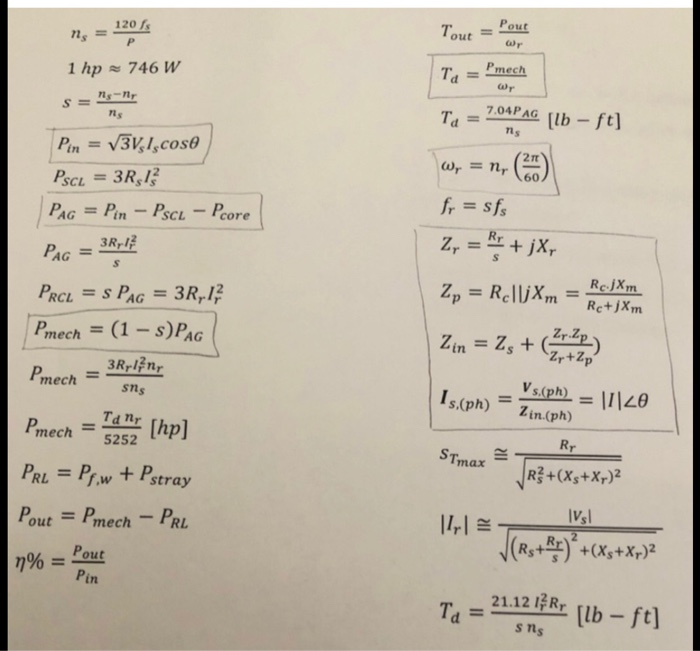 nₛ = 120 fₛ / P
1 hp ≈ 746 W
s = nₛ−nᵣ / nₛ
P_in = √3VₛIₛcosθ
P_SCL = 3RₛIₛ²
P_AG = P_in − P_SCL − P_core
P_AG = 3RᵣIᵣ² / s
P_RCL = s P_AG = 3RᵣIᵣ²
P_mech = (1 − s)P_AG
P_mech = 3RᵣIᵣ²nᵣ / snₛ
P_mech = T_d nᵣ / 5252 [hp]
P_RL = P_f,w + P_stray
P_out = P_mech − P_RL
η% = P_out / P_in
T_out = P_out / ωᵣ
T_d = P_mech / ωᵣ
T_d = 7.04P_AG / nₛ [lb − ft]
ωᵣ = nᵣ (2π / 60)
fᵣ = sfₛ
Zᵣ = Rᵣ / s + jXᵣ
Z_p = R_c||jX_m = R_c.jX_m / R_c+jX_m
Z_in = Zₛ + (Zᵣ.Z_p / Zᵣ+Z_p)
I_s,(ph) = V_s,(ph) / Z_in.(ph) = |I|∠θ
s_Tmax ≅ Rᵣ / √(Rₛ²+(Xₛ+Xᵣ)²)
|Iᵣ| ≅ |Vₛ| / √((Rₛ+Rᵣ/s)²+(Xₛ+Xᵣ)²)
T_d = 21.12 Iᵣ²Rᵣ / s nₛ [lb − ft]